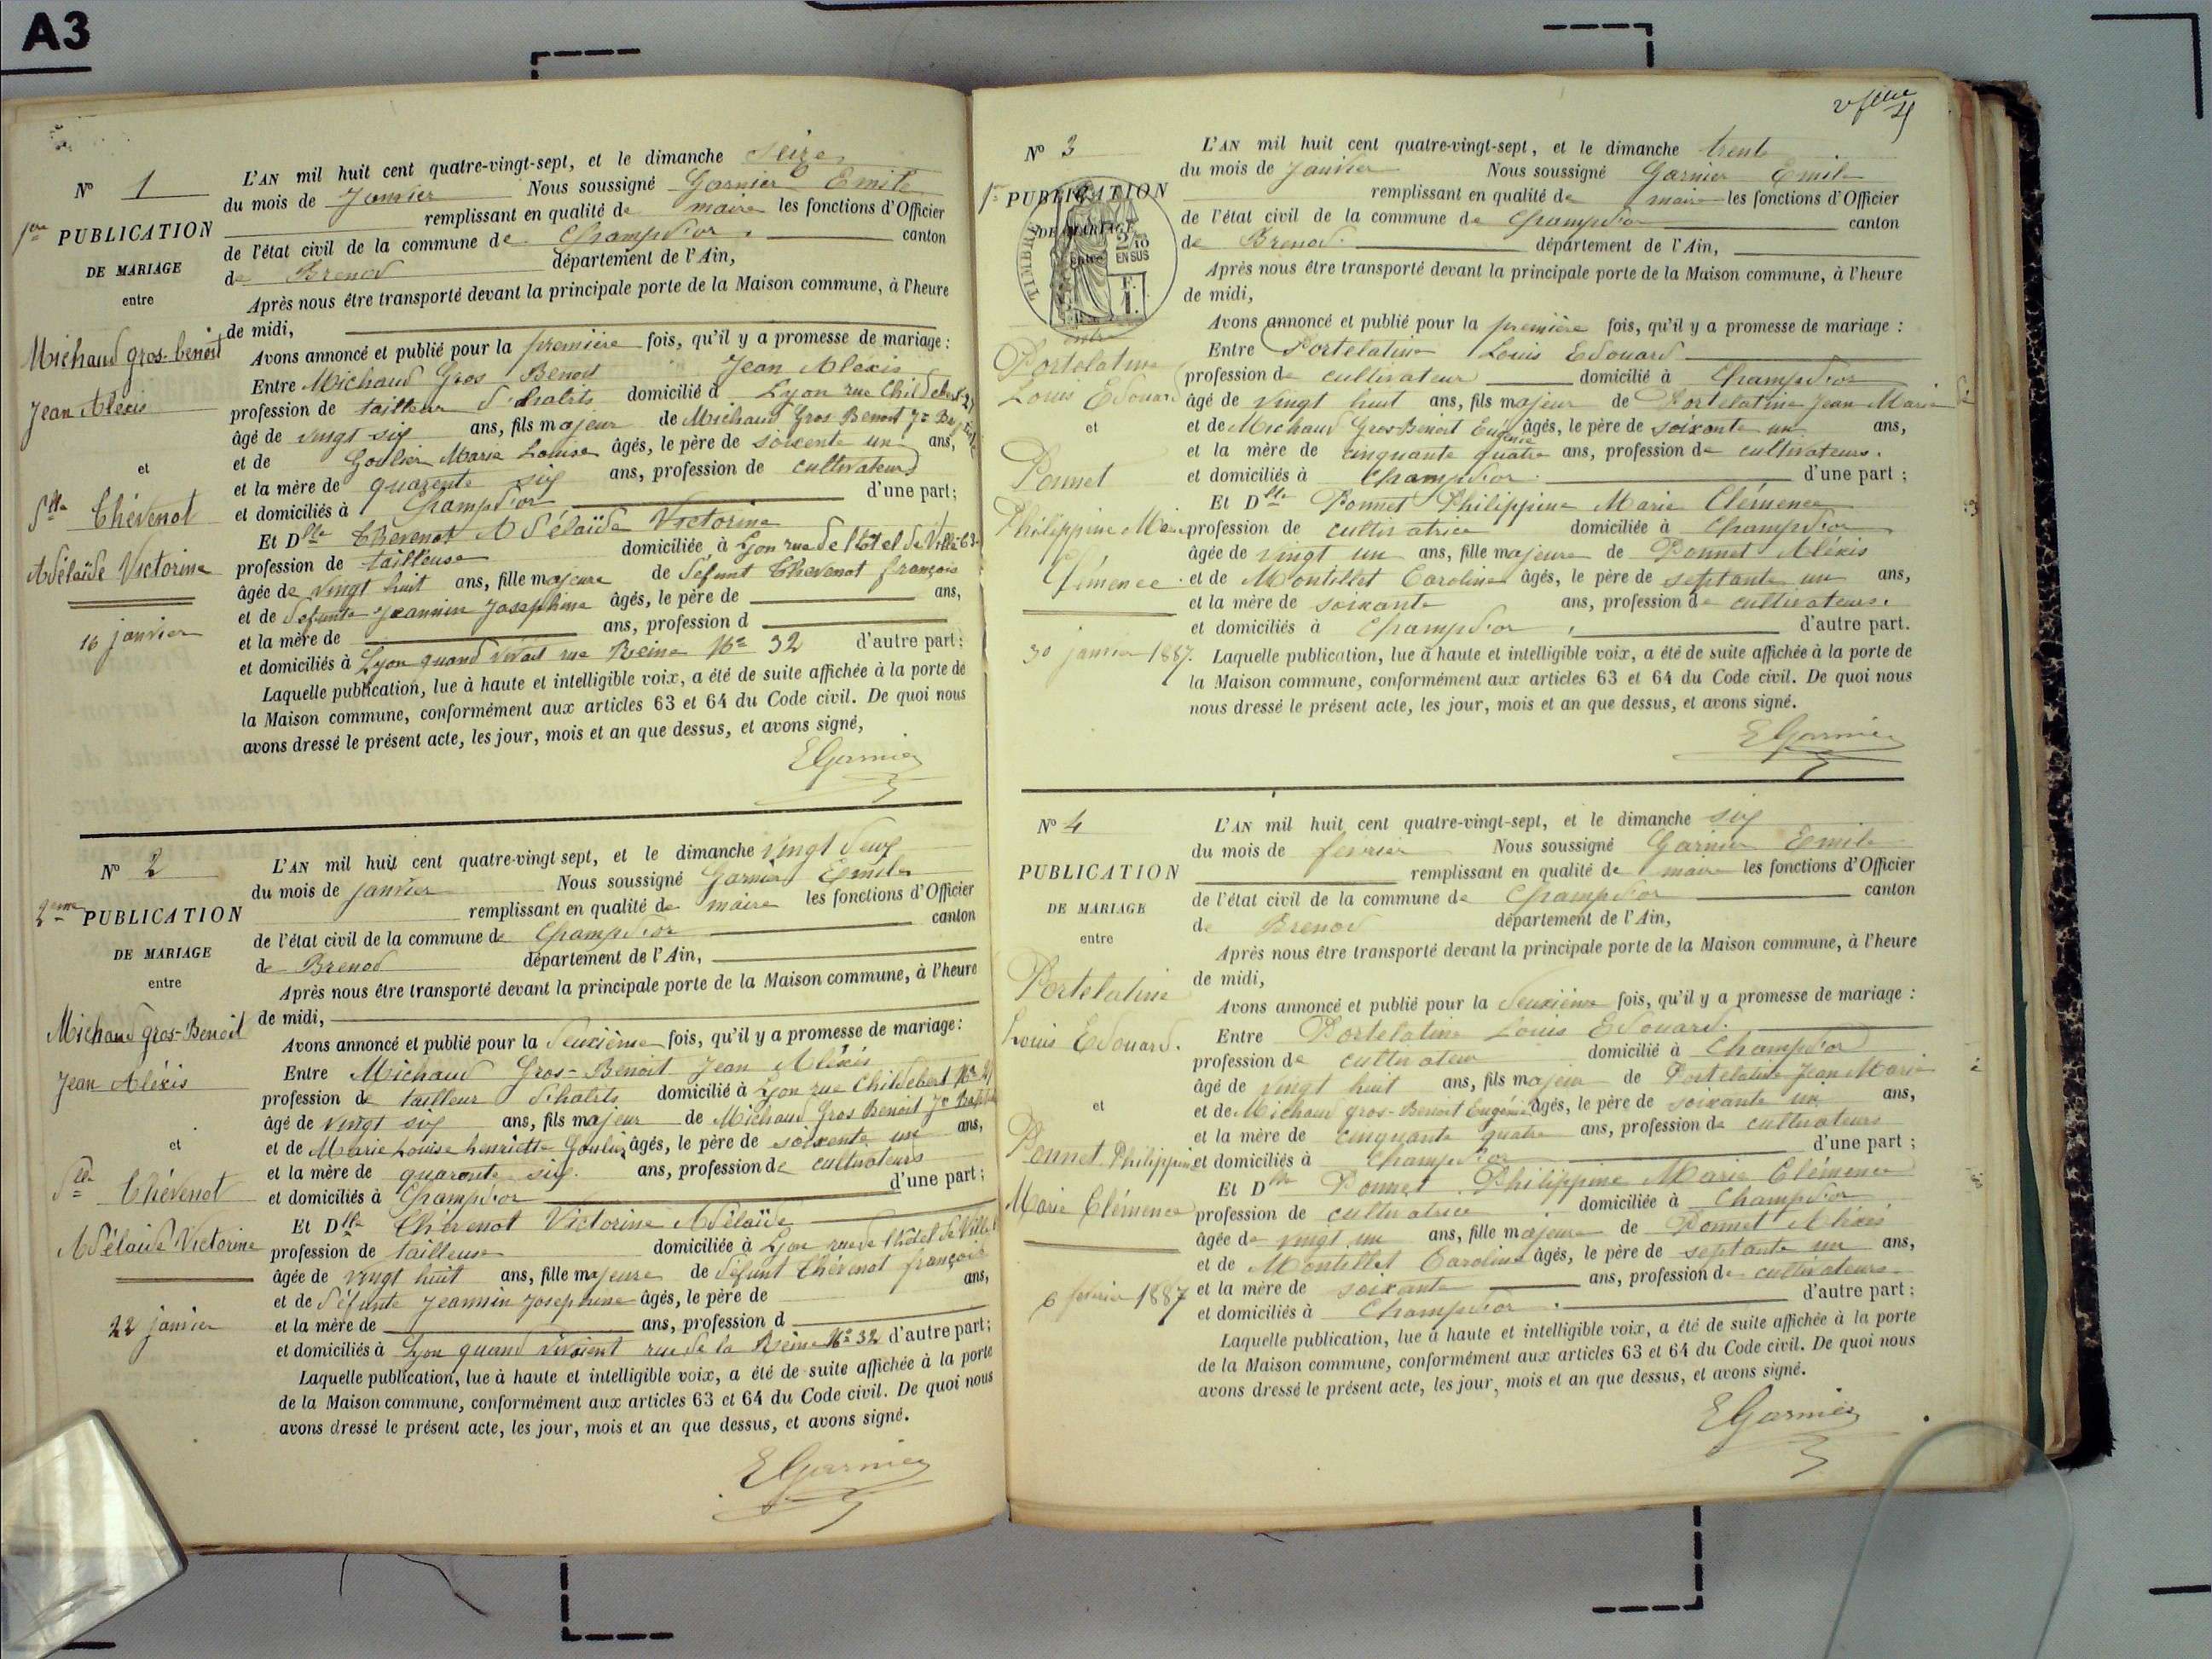 A3
N° 1
1ère PUBLICATION
DE MARIAGE
entre
Michaud gros-benoit
Jean Alexis
et
Dlle Thévenot
Adélaïde Victorine
16 janvier
L'AN mil huit cent quatre-vingt-sept, et le dimanche seize
du mois de Janvier Nous soussigné Garnier Emile
remplissant en qualité de maire les fonctions d'Officier
de l'état civil de la commune de Champd'or canton
de Brenod département de l'Ain,
Après nous être transporté devant la principale porte de la Maison commune, à l'heure
de midi,
Avons annoncé et publié pour la première fois, qu'il y a promesse de mariage :
Entre Michaud Gros Benoit Jean Alexis
profession de tailleur d'habits domicilié à Lyon rue Childebert 21
âgé de vingt six ans, fils majeur de Michaud Gros Benoit Jn Bapt
et de Goulier Marie Louise âgés, le père de soixente un ans,
et la mère de quarente six ans, profession de cultivateurs
et domiciliés à Champd'or d'une part;
Et Dlle Thevenot Adélaïde Victorine
profession de tailleuse domiciliée à Lyon rue de l'Hôtel de Ville 63
âgée de vingt huit ans, fille majeure de défunt Thevenot françois
et de défunte Jeannin Josephine âgés, le père de ans,
et la mère de ans, profession d
et domiciliés à Lyon quand vivait rue Reine No 32 d'autre part;
Laquelle publication, lue à haute et intelligible voix, a été de suite affichée à la porte de
la Maison commune, conformément aux articles 63 et 64 du Code civil. De quoi nous
avons dressé le présent acte, les jour, mois et an que dessus, et avons signé,
EGarnier
N° 2
2eme PUBLICATION
DE MARIAGE
entre
Michaud gros-Benoit
Jean Aléxis
et
Dlle Thévenot
Adélaide Victorine
22 janvier
L'AN mil huit cent quatre-vingt sept, et le dimanche vingt deux
du mois de janvier Nous soussigné Garnier Emile
remplissant en qualité de maire les fonctions d'Officier
de l'état civil de la commune de Champd'or canton
de Brenod département de l'Ain,
Après nous être transporté devant la principale porte de la Maison commune, à l'heure
de midi,
Avons annoncé et publié pour la deuxième fois, qu'il y a promesse de mariage:
Entre Michaud Gros-Benoit Jean Aléxis
profession de tailleur d'habits domicilié à Lyon rue Childebert No 21
âgé de vingt six ans, fils majeur de Michaud Gros Benoit Jn Baptis
et de Marie Louise henriette Goulier âgés, le père de soixente un ans,
et la mère de quarante six ans, profession de cultivateurs
et domiciliés à Champd'or d'une part;
Et Dlle Thévenot Victorine Adélaïde
profession de tailleuse domiciliée à Lyon rue de l'hôtel de Ville
âgée de vingt huit ans, fille majeure de défunt Thévenot françois
et de défunte Jeannin Josephine âgés, le père de ans,
et la mère de ans, profession d
et domiciliés à Lyon quand vivaient rue de la Reine No 32 d'autre part;
Laquelle publication, lue à haute et intelligible voix, a été de suite affichée à la porte
de la Maison commune, conformément aux articles 63 et 64 du Code civil. De quoi nous
avons dressé le présent acte, les jour, mois et an que dessus, et avons signé.
EGarnier
N° 3
1re PUBLICATION
DE MARIAGE
entre
TIMBRE
2/10
EN SUS
F.
1.
entre
Portelatine
Louis Edouard
et
Ponnet
Philippine Marie
Clémence
30 janvier 1887.
L'AN mil huit cent quatre-vingt-sept, et le dimanche trente
du mois de Janvier Nous soussigné Garnier Emile
remplissant en qualité de maire les fonctions d'Officier
de l'état civil de la commune de Champd'or canton
de Brenod. département de l'Ain,
Après nous être transporté devant la principale porte de la Maison commune, à l'heure
de midi,
Avons annoncé et publié pour la première fois, qu'il y a promesse de mariage :
Entre Portelatine Louis Edouard
profession de cultivateur domicilié à Champd'or
âgé de vingt huit ans, fils majeur de Portelatine Jean Marie
et de Michaud Gros Benoit Eugénie âgés, le père de soixante un ans,
et la mère de cinquante quatre ans, profession de cultivateurs.
et domiciliés à Champd'or d'une part ;
Et Dlle Ponnet Philippine Marie Clémence
profession de cultivatrice domiciliée à Champd'or
âgée de vingt un ans, fille majeure de Ponnet Aléxis
et de Montillet Caroline âgés, le père de septante un ans,
et la mère de soixante ans, profession de cultivateurs.
et domiciliés à Champd'or d'autre part.
Laquelle publication, lue à haute et intelligible voix, a été de suite affichée à la porte de
la Maison commune, conformément aux articles 63 et 64 du Code civil. De quoi nous
nous dressé le présent acte, les jour, mois et an que dessus, et avons signé.
EGarnier
N° 4
PUBLICATION
DE MARIAGE
entre
Portelatine
Louis Edouard.
et
Ponnet Philippine
Marie Clémence
6 fevrier 1887
L'AN mil huit cent quatre-vingt-sept, et le dimanche six
du mois de fevrier Nous soussigné Garnier Emile
remplissant en qualité de maire les fonctions d'Officier
de l'état civil de la commune de Champd'or canton
de Brenod département de l'Ain,
Après nous être transporté devant la principale porte de la Maison commune, à l'heure
de midi,
Avons annoncé et publié pour la deuxième fois, qu'il y a promesse de mariage :
Entre Portelatine Louis Edouard.
profession de cultivateur domicilié à Champd'or
âgé de vingt huit ans, fils majeur de Portelatine Jean Marie
et de Michaud gros-Benoit Eugénie âgés, le père de soixante un ans,
et la mère de cinquante quatre ans, profession de cultivateurs
et domiciliés à Champd'or d'une part ;
Et Dlle Ponnet Philippine Marie Clémence
profession de cultivatrice domiciliée à Champd'or
âgée de vingt un ans, fille majeure de Ponnet Aléxis
et de Montillet Caroline âgés, le père de septante un ans,
et la mère de soixante ans, profession de cultivateurs
et domiciliés à Champd'or. d'autre part ;
Laquelle publication, lue à haute et intelligible voix, a été de suite affichée à la porte
de la Maison commune, conformément aux articles 63 et 64 du Code civil. De quoi nous
avons dressé le présent acte, les jour, mois et an que dessus, et avons signé.
EGarnier